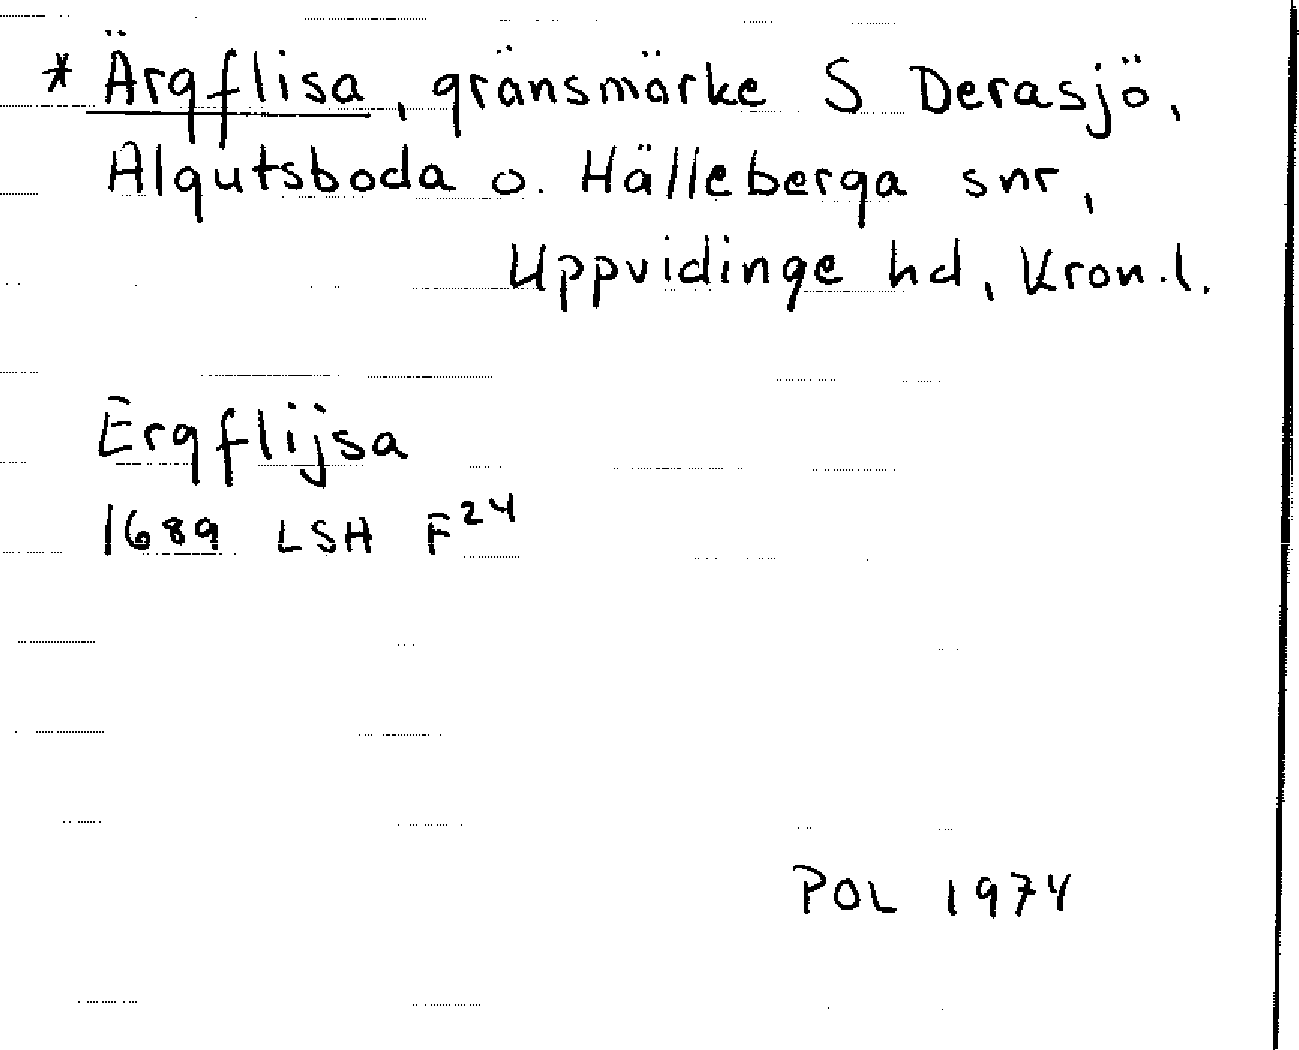 * Ärgflisa, gränsmärke S Derasjö,
Algutsboda o. Hälleberga snr,
Uppvidinge hd, Kron.l.
Ergflijsa
1689 LSH F²⁴
POL 1974